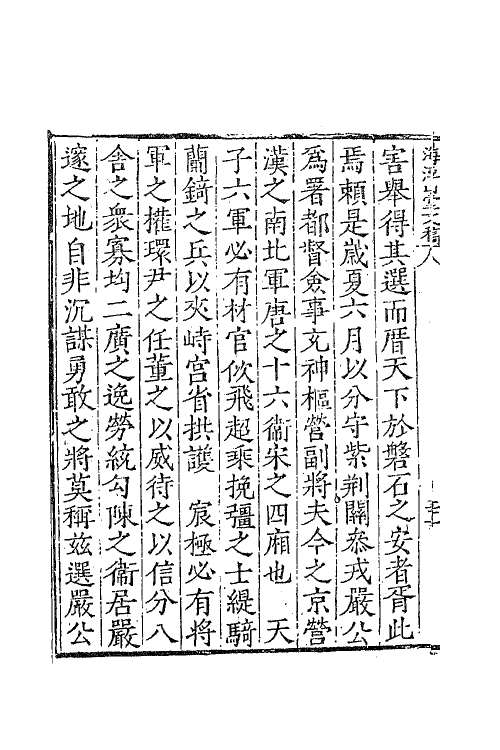 害舉得其選而厝天下於磐石之安者胥此
焉頼是歲夏六月以分守紫荆關叅戎嚴公
爲署都督僉事充神樞營副將夫今之京營
漢之南北軍唐之十六衞宋之四廂也 天
子六軍必有材官佽飛超乘挽彊之士緹騎
蘭錡之兵以夾峙宫省拱護 宸極必有將
軍之權環尹之任董之以威待之以信分八
舍之衆寡均二廣之逸勞統勾陳之衞居嚴
邃之地自非沉謀勇敢之將莫稱兹選嚴公